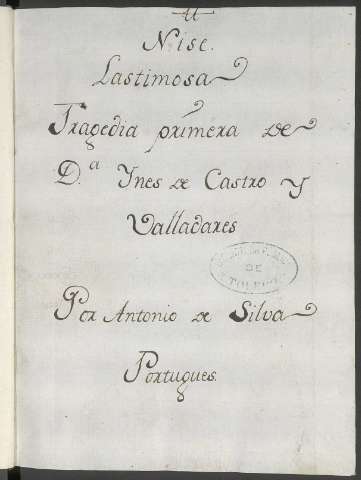 Nise
Lastimosa
Tragedia primera de
D.a Ynes de Castro y
Valladares
DE
TOLEDO
Por Antonio de Silva
Portugues.